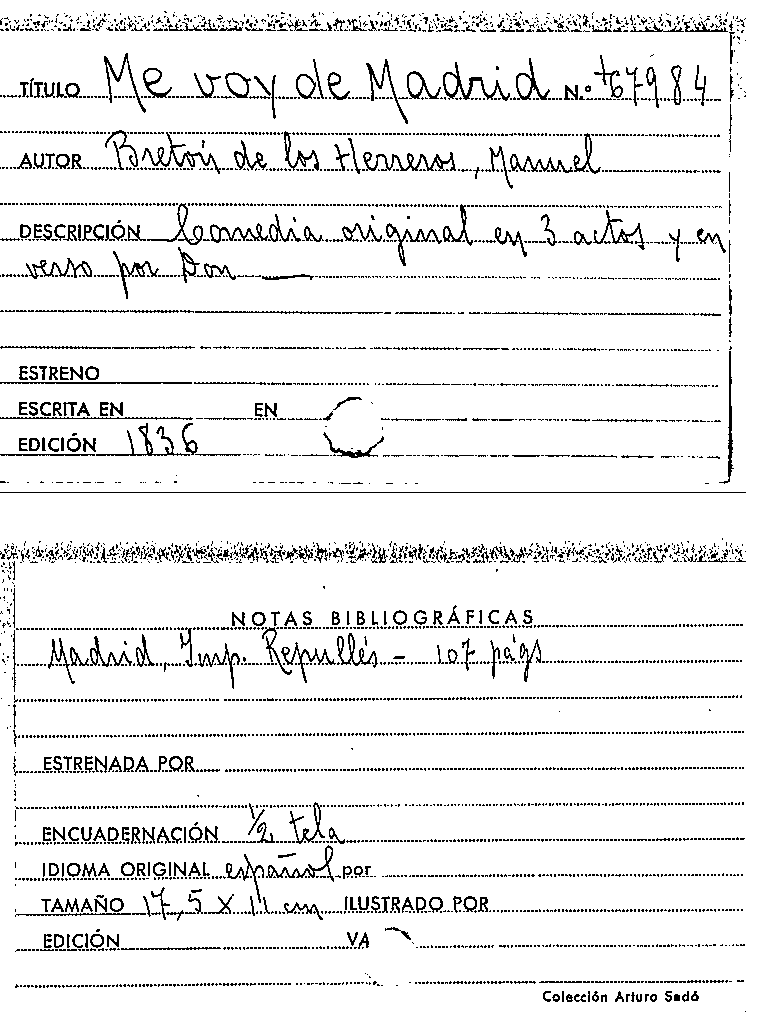 TÍTULO Me voy de Madrid N.º 67984
AUTOR Bretón de los Herreros, Manuel
DESCRIPCIÓN Comedia original en 3 actos y en
verso por Don —
ESTRENO
ESCRITA EN EN
EDICIÓN 1836
NOTAS BIBLIOGRÁFICAS
Madrid, Imp. Repullés - 107 págs
ESTRENADA POR
ENCUADERNACIÓN 1/2 tela
IDIOMA ORIGINAL español por
TAMAÑO 17,5 X 11 cm ILUSTRADO POR
EDICIÓN VA
Colección Arturo Sedó